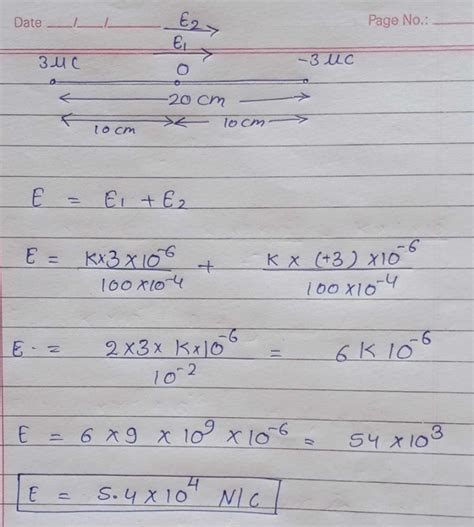 Date __/__/__ E₂ Page No.: ___
E₁
3μC O -3μC
20 cm
10 cm 10 cm
E = E₁ + E₂
E = K×3×10⁻⁶ / 100×10⁻⁴ + K × (+3) ×10⁻⁶ / 100×10⁻⁴
E = 2×3×K×10⁻⁶ / 10⁻² = 6K 10⁻⁶
E = 6×9×10⁹×10⁻⁶ = 54×10³
E = 5.4×10⁴ N/C